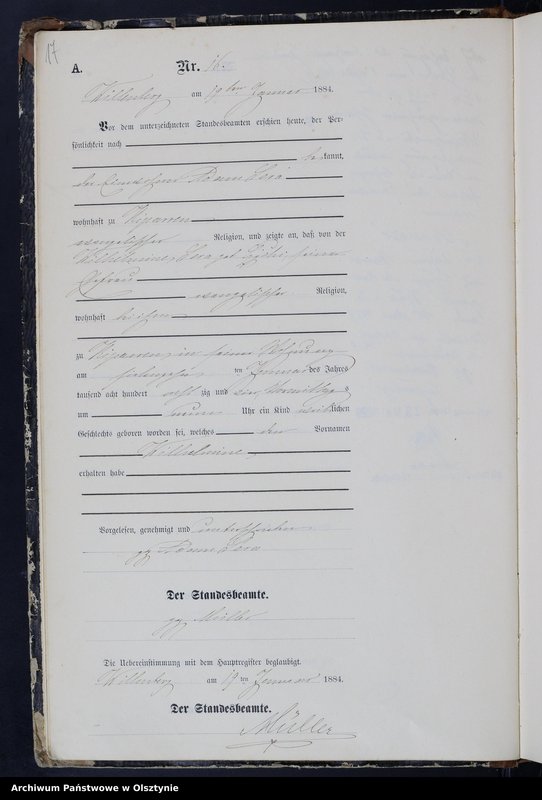 17
A.
Nr. 16.
Willenberg am 19ten Januar 1884.
Vor dem unterzeichneten Standesbeamten erschien heute, der Per-
sönlichkeit nach
bekannt,
der
wohnhaft zu
evangelischer Religion, und zeigte an, daß von der
Wilhelmine geb. seiner
Ehefrau
evangelischer Religion,
wohnhaft bei ihm
zu in seiner Wohnung
am siebenzehn ten Januar des Jahres
tausend acht hundert acht zig und vier Vormittags
um neun Uhr ein Kind weiblichen
Geschlechts geboren worden sei, welches den Vornamen
Wilhelmine
erhalten habe
Vorgelesen, genehmigt und unterschrieben
gz.
Der Standesbeamte.
gz. Müller
Die Uebereinstimmung mit dem Hauptregister beglaubigt.
Willenberg am 19 ten Januar 1884.
Der Standesbeamte.
Müller
Archiwum Państwowe w Olsztynie